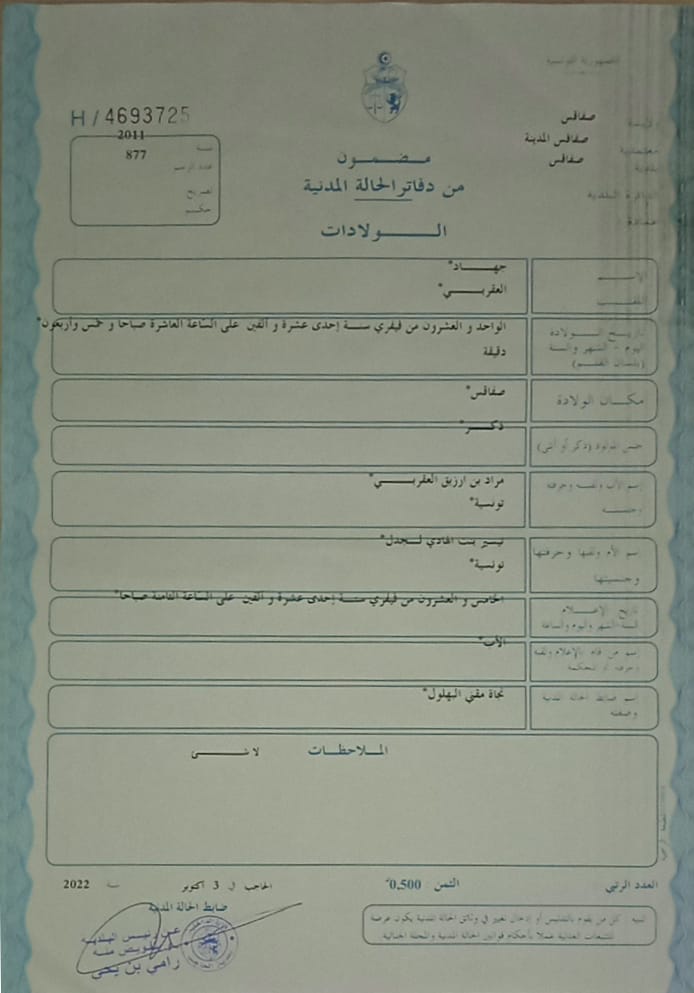 الجمهورية التونسية
H / 4693725
صفاقس
صفاقس المدينة
صفاقس
الدائرة البلدية
2011
سنة
877
عدد الرسم
حكم
مضمون
من دفاتر الحالة المدنية
الولادات
الإسم
جهاد*
اللقب
العقربي*
تاريخ الولادة
اليوم - الشهر والسنة
(بلسان القلم)
الواحد و العشرون من فيفري سنة إحدى عشرة و ألفين على الساعة العاشرة صباحا و خمس وأربعون*
دقيقة
مكان الولادة
صفاقس*
جنس المولود (ذكر أو أنثى)
ذكر*
إسم الأب ولقبه وحرفته
وجنسيته
مراد بن ارزيق العقربي*
تونسية*
إسم الأم ولقبها وحرفتها
وجنسيتها
تيسير بنت الهادي لجدل*
تونسية*
تاريخ الإعلام
السنة الشهر واليوم والساعة
الخامس و العشرون من فيفري سنة إحدى عشرة و ألفين على الساعة الثامنة صباحا*
إسم من قام بالإعلام ولقبه
وحرفته أو المحكمة
الأب*
إسم ضابط الحالة المدنية
وصفته
نجاة مقني البهلول*
الملاحظات
لا شئ
العدد الرتبي
الثمن 0,500*
الحاجب في 3 أكتوبر سنة 2022
ضابط الحالة المدنية
عن رئيس البلدية
وبتفويض منه
رامي بن يحي
تنبيه كل من يقوم بالتدليس أو إدخال تغيير في وثائق الحالة المدنية يكون عرضة
للتتبعات العدلية عملا بأحكام قوانين الحالة المدنية والمجلة الجنائية